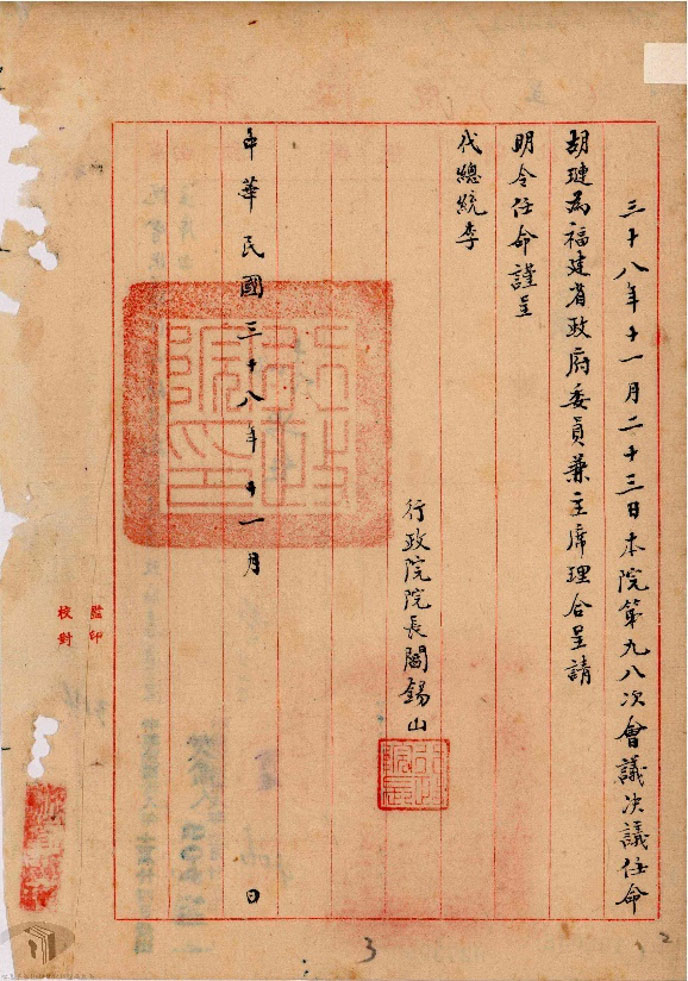 三十八年十一月二十三日本院第九八次會議决議任命
胡璉為福建省政府委員兼主席理合呈請
明令任命謹呈
代總統李
行政院院長閻錫山
行政院長
中華民國三十八年十一月 日
行政院印
監印
校對
3
2